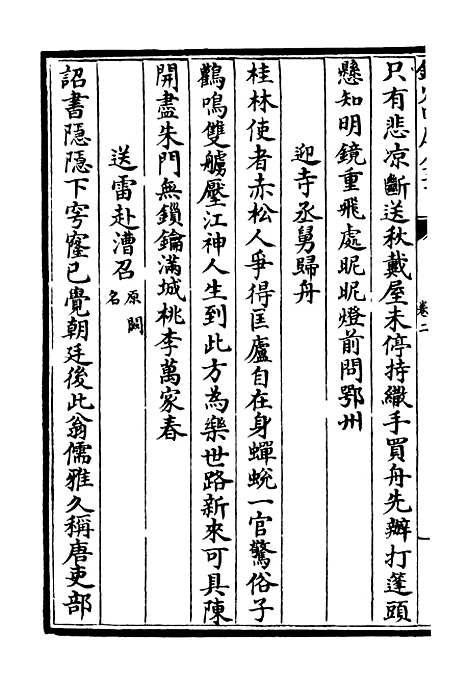 卷二
只有悲凉斷送秋戴屋未停持繖手買舟先辦打蓬頭
懸知明鏡重飛處昵昵燈前問鄂州
迎寺丞舅歸舟
桂林使者赤松人爭得匡廬自在身蟬蛻一官驚俗子
鸛鳴雙艣壓江神人生到此方為樂世路新來可具陳
開盡朱門無鎖鑰滿城桃李萬家春
送雷赴漕召原闕名
詔書隠隠下穹窿已覺朝廷後此翁儒雅久稱唐吏部